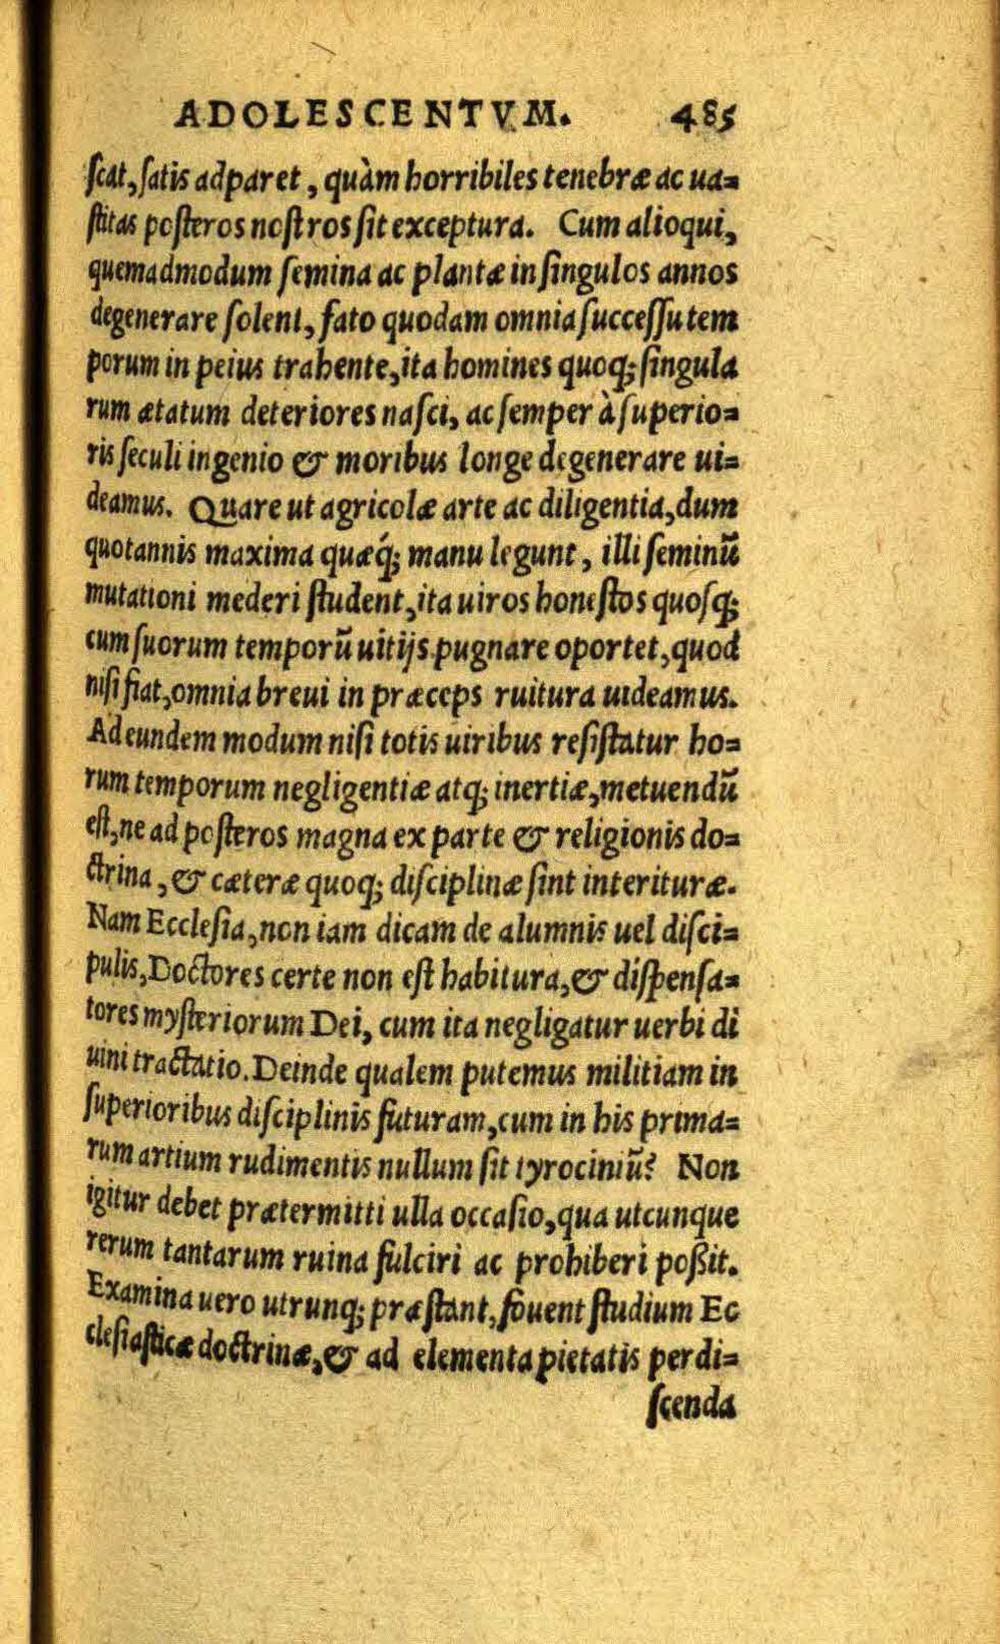 ADOLESCENTVM. 485
ſcat, ſatis adparet, quàm horribiles tenebræ ac ua=
ſtitas poſteros noſtros ſit exceptura. Cum alioqui,
quemadmodum ſemina ac plantæ in ſingulos annos
degenerare ſolent, fato quodam omnia ſucceſſu tem
porum in peius trahente, ita homines quoq; ſingula
rum ætatum deteriores naſci, ac ſemper à ſuperio=
ris ſeculi ingenio & moribus longe degenerare ui=
deamus. Quare ut agricolæ arte ac diligentia, dum
quotannis maxima quæq́; manu legunt, illi ſeminū
mutationi mederi ſtudent, ita uiros honeſtos quoſq;
cum ſuorum temporū uitijs pugnare oportet, quod
niſi fiat, omnia breui in præceps ruitura uideamus.
Ad eundem modum niſi totis uiribus reſiſtatur ho=
rum temporum negligentiæ atq; inertiæ, metuendū
eſt, ne ad poſteros magna ex parte & religionis do=
ctrina, & cæteræ quoq; diſciplinæ ſint interituræ.
Nam Eccleſia, non iam dicam de alumnis uel diſci=
pulis, Doctores certe non eſt habitura, & diſpenſa=
tores myſteriorum Dei, cum ita negligatur uerbi di
uini tractatio. Deinde qualem putemus militiam in
ſuperioribus diſciplinis futuram, cum in his prima=
rum artium rudimentis nullum ſit tyrociniū? Non
igitur debet prætermitti ulla occaſio, qua utcunque
rerum tantarum ruina fulciri ac prohiberi poßit.
Examina uero utrunq; præſtant, fouent ſtudium Ec
cleſiaſticæ doctrinæ, & ad elementa pietatis perdi=
ſcenda